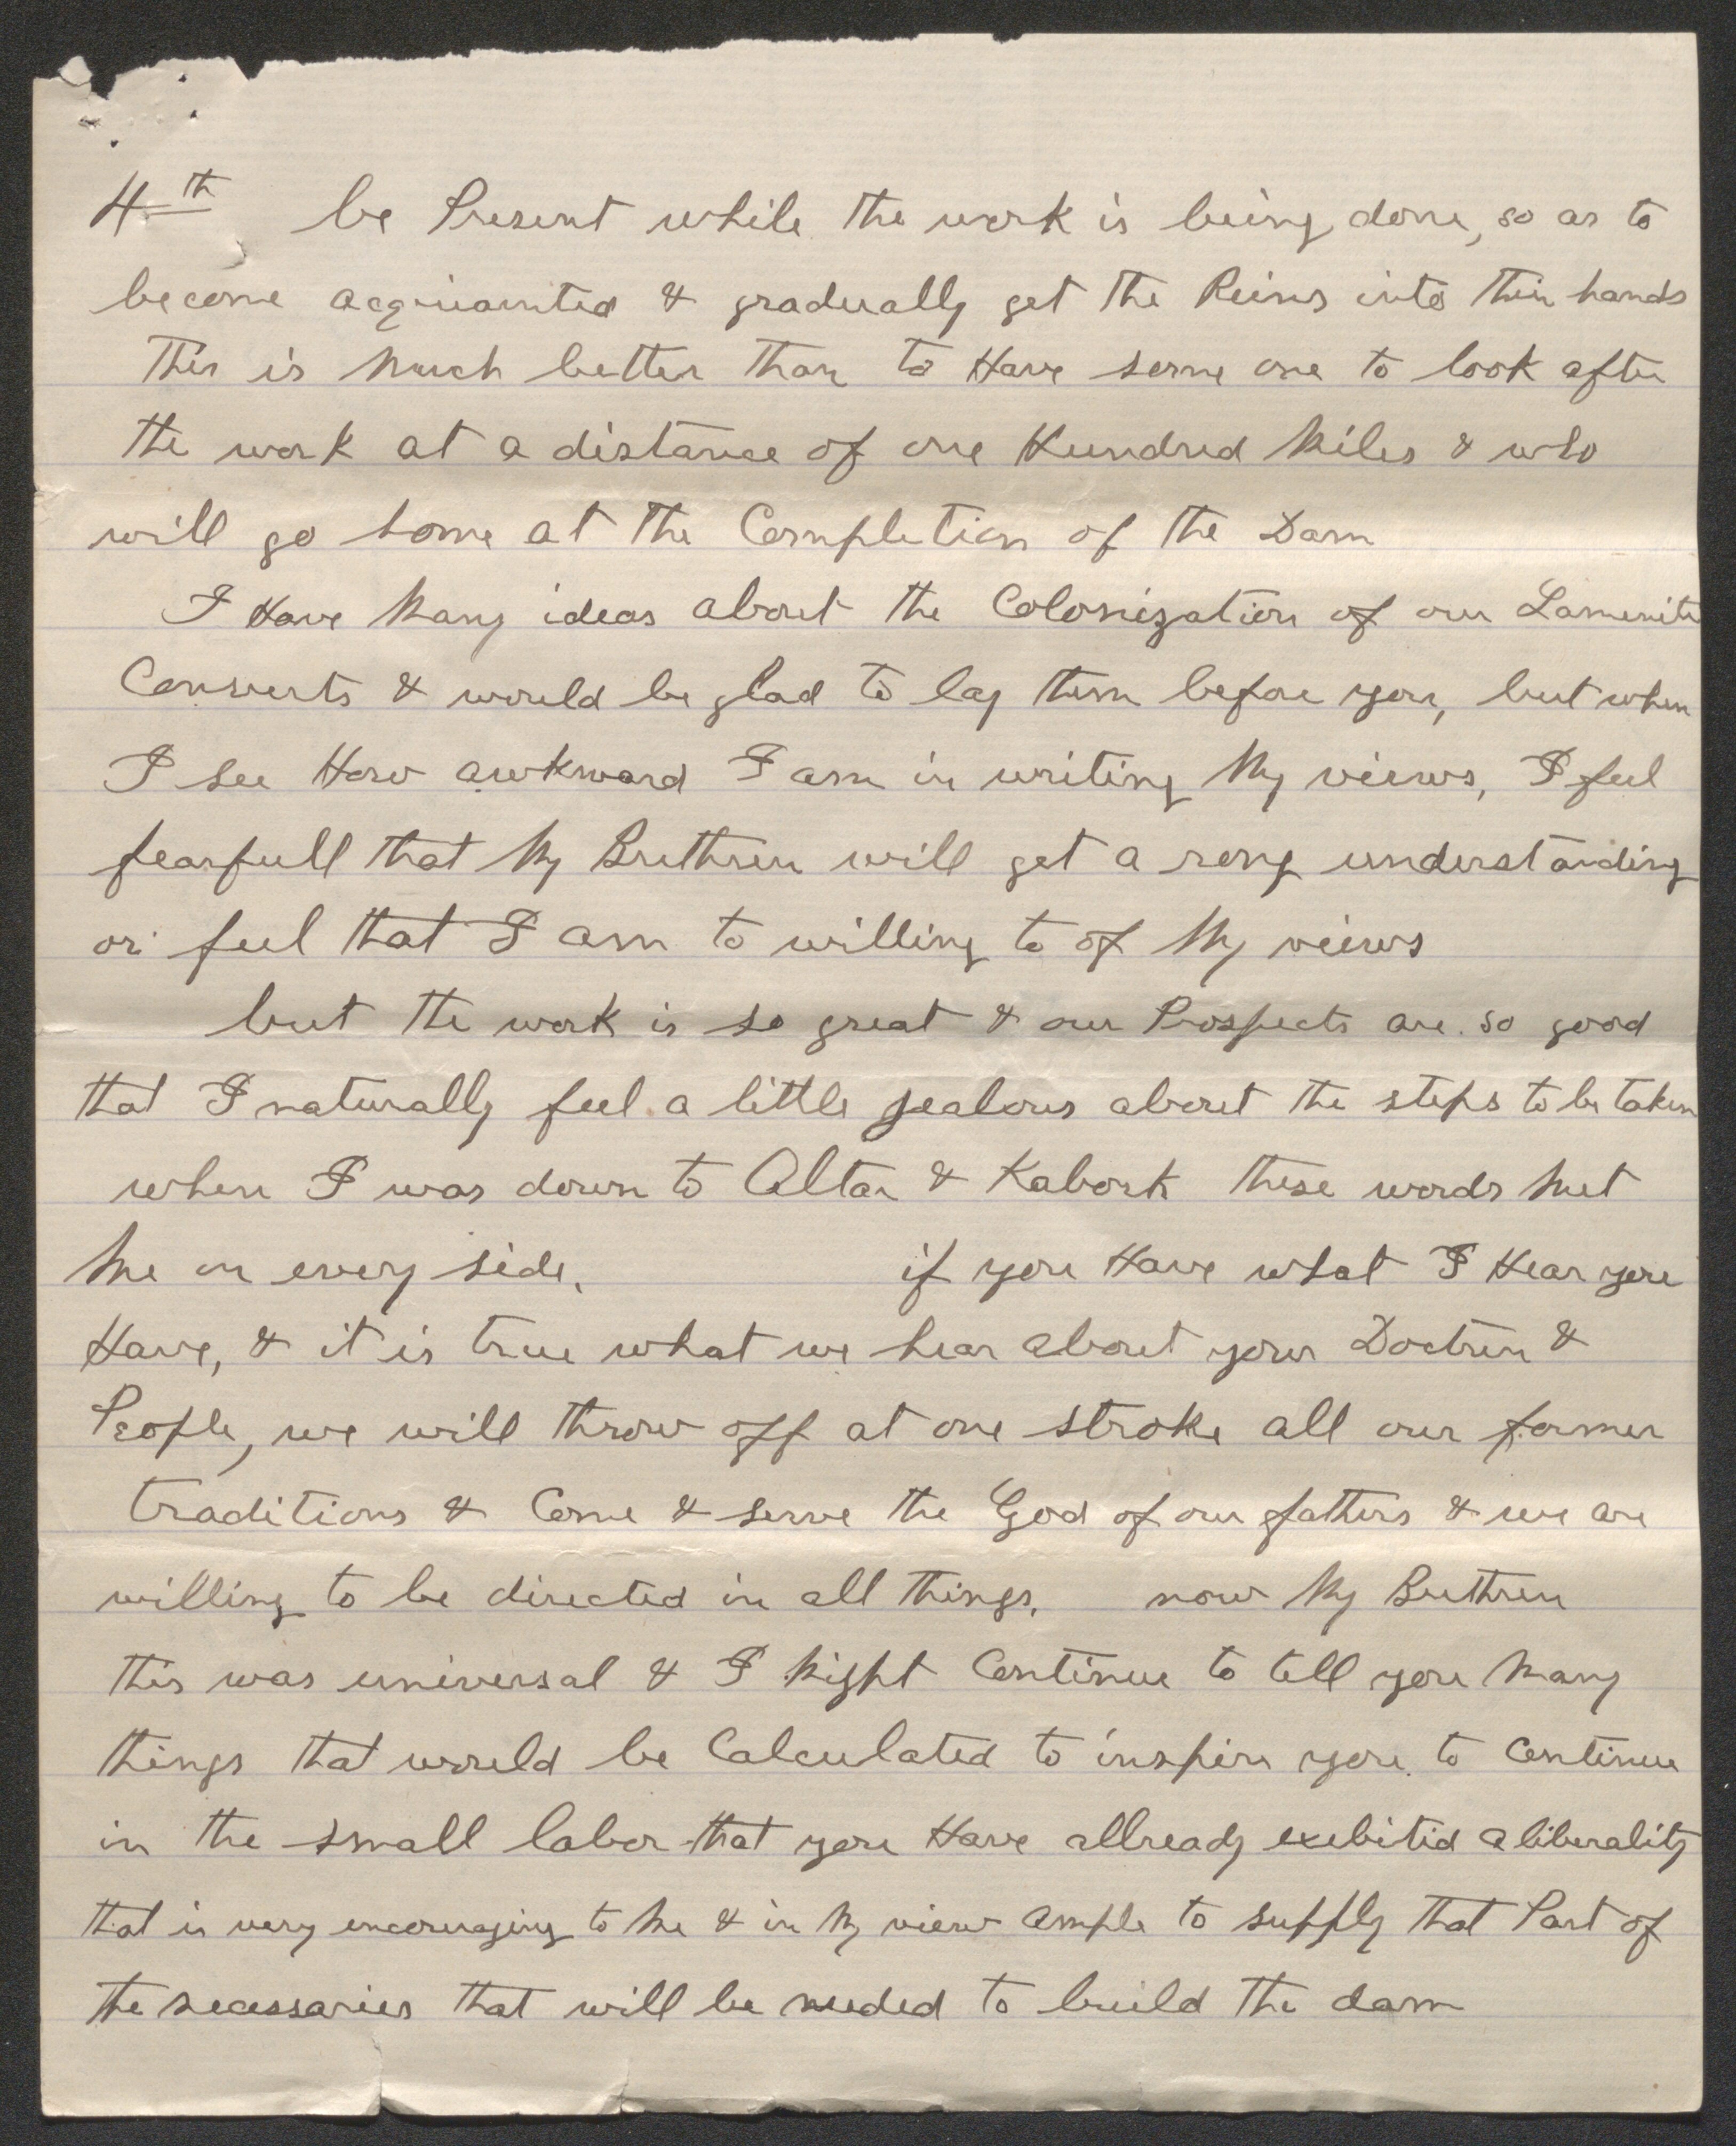 4th be Present while the work is being done, so as to
become acquainted & gradually get the Reins into their hands
This is Much better than to Have some one to look after
the work at a distance of one Hundred Miles & who
will go home at the Completion of the Dam
I Have Many ideas about the Colonization of our Lamenite
Converts & would be glad to lay them before you, but when
I see How awkward I am in writing My views, I feel
fearfull that My Brethren will get a rong understanding
or feel that I am to willing to of My views
but the work is so great & our Prospects are so good
that I naturally feel a little jealous about the steps to be taken
when I was down to Altar & Kabork these words Met
Me on every side, if you Have what I Hear you
Have, & it is true what we hear about your Doctrin &
People, we will throw off at one stroke all our former
traditions & Come & serve the God of our fathers & we are
willing to be directed in all things. now My Brethren
this was universal & I Might Continue to tell you Many
things that would be Calculated to inspire you to Continue
in the small labor that you Have allready exebited a liberality
that is very encouraging to Me & in My view ample to supply that Part of
the necessaries that will be needed to build the dam